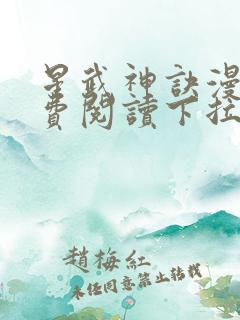 星武神訣漫
費閱讀下拉
趙梅紅
未经同意禁止转载